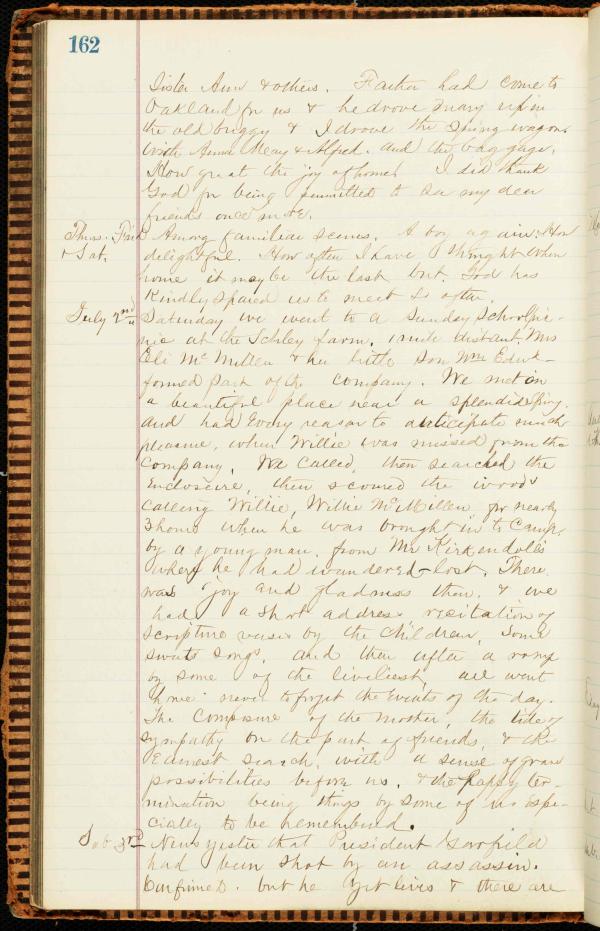 162
Sister Ann & others. Father had come to
Oakland for us & he drove Mary up in
the old buggy & I drove the spring wagon
with Anna Mary & Alfred. and the baggage.
How great the joy of home. I did thank
God for being permitted to see my dear
friends once more.
Thurs. Frid. Among familiar scenes. A boy again. How
& Sat. delightful. How often I have thought when
home it may be the last but God has
kindly spared us to meet so often.
July 2nd Saturday we went to a Sunday School pic-
nic at the Schley farm, 1 mile distant. Mrs
Eli McMillen & her little son Wm Edw-
formed part of the company. We met in
a beautiful place near a splendid spring.
and had every reason to anticipate much
pleasure, when Willie was missed from the
company. We called, then searched the
enclosure, then scoured the woods
calling Willie, Willie McMillen for nearly
3 hours when he was brought in to camp,
by a young man, from Mr Kirkendoll's
where he had wandered lost. There
was joy and gladness then. & we
had a short address recitation of
scripture verses by the children, Some
sweet songs, and then after a romp
by some of the liveliest, all went
home never to forget the events of the day.
The composure of the mother, the tide of
sympathy on the part of friends, & the
Earnest search, with a sense of grave
possibilities before us, & the happy ter-
mination being things by some of us espe-
cially to be remembered.
Sab. 3rd News yester that President Garfield
had been shot by an assassin.
Confirmed. but he yet lives & there are